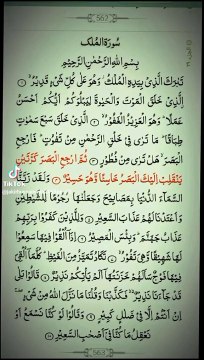 562
سُورَةُ المُلْك
بِسْمِ اللَّهِ الرَّحْمَٰنِ الرَّحِيمِ
تَبَٰرَكَ الَّذِي بِيَدِهِ الْمُلْكُ وَهُوَ عَلَىٰ كُلِّ شَيْءٍ قَدِيرٌ ١
الَّذِي خَلَقَ الْمَوْتَ وَالْحَيَوٰةَ لِيَبْلُوَكُمْ أَيُّكُمْ أَحْسَنُ
عَمَلًا وَهُوَ الْعَزِيزُ الْغَفُورُ ٢ الَّذِي خَلَقَ سَبْعَ سَمَٰوَٰتٍ
طِبَاقًا مَّا تَرَىٰ فِي خَلْقِ الرَّحْمَٰنِ مِن تَفَٰوُتٍ فَارْجِعِ
الْبَصَرَ هَلْ تَرَىٰ مِن فُطُورٍ ٣ ثُمَّ ارْجِعِ الْبَصَرَ كَرَّتَيْنِ
يَنقَلِبْ إِلَيْكَ الْبَصَرُ خَاسِئًا وَهُوَ حَسِيرٌ ٤ وَلَقَدْ زَيَّنَّا
السَّمَاءَ الدُّنْيَا بِمَصَٰبِيحَ وَجَعَلْنَٰهَا رُجُومًا لِّلشَّيَٰطِينِ
وَأَعْتَدْنَا لَهُمْ عَذَابَ السَّعِيرِ ٥ وَلِلَّذِينَ كَفَرُوا بِرَبِّهِمْ
عَذَابُ جَهَنَّمَ وَبِئْسَ الْمَصِيرُ ٦ إِذَا أُلْقُوا فِيهَا سَمِعُوا
لَهَا شَهِيقًا وَهِيَ تَفُورُ ٧ تَكَادُ تَمَيَّزُ مِنَ الْغَيْظِ كُلَّمَا أُلْقِيَ
فِيهَا فَوْجٌ سَأَلَهُمْ خَزَنَتُهَا أَلَمْ يَأْتِكُمْ نَذِيرٌ ٨ قَالُوا بَلَىٰ
قَدْ جَاءَنَا نَذِيرٌ فَكَذَّبْنَا وَقُلْنَا مَا نَزَّلَ اللَّهُ مِن شَيْءٍ إِنْ
أَنتُمْ إِلَّا فِي ضَلَٰلٍ كَبِيرٍ ٩ وَقَالُوا لَوْ كُنَّا نَسْمَعُ أَوْ
نَعْقِلُ مَا كُنَّا فِي أَصْحَٰبِ السَّعِيرِ ١٠
TikTok
563